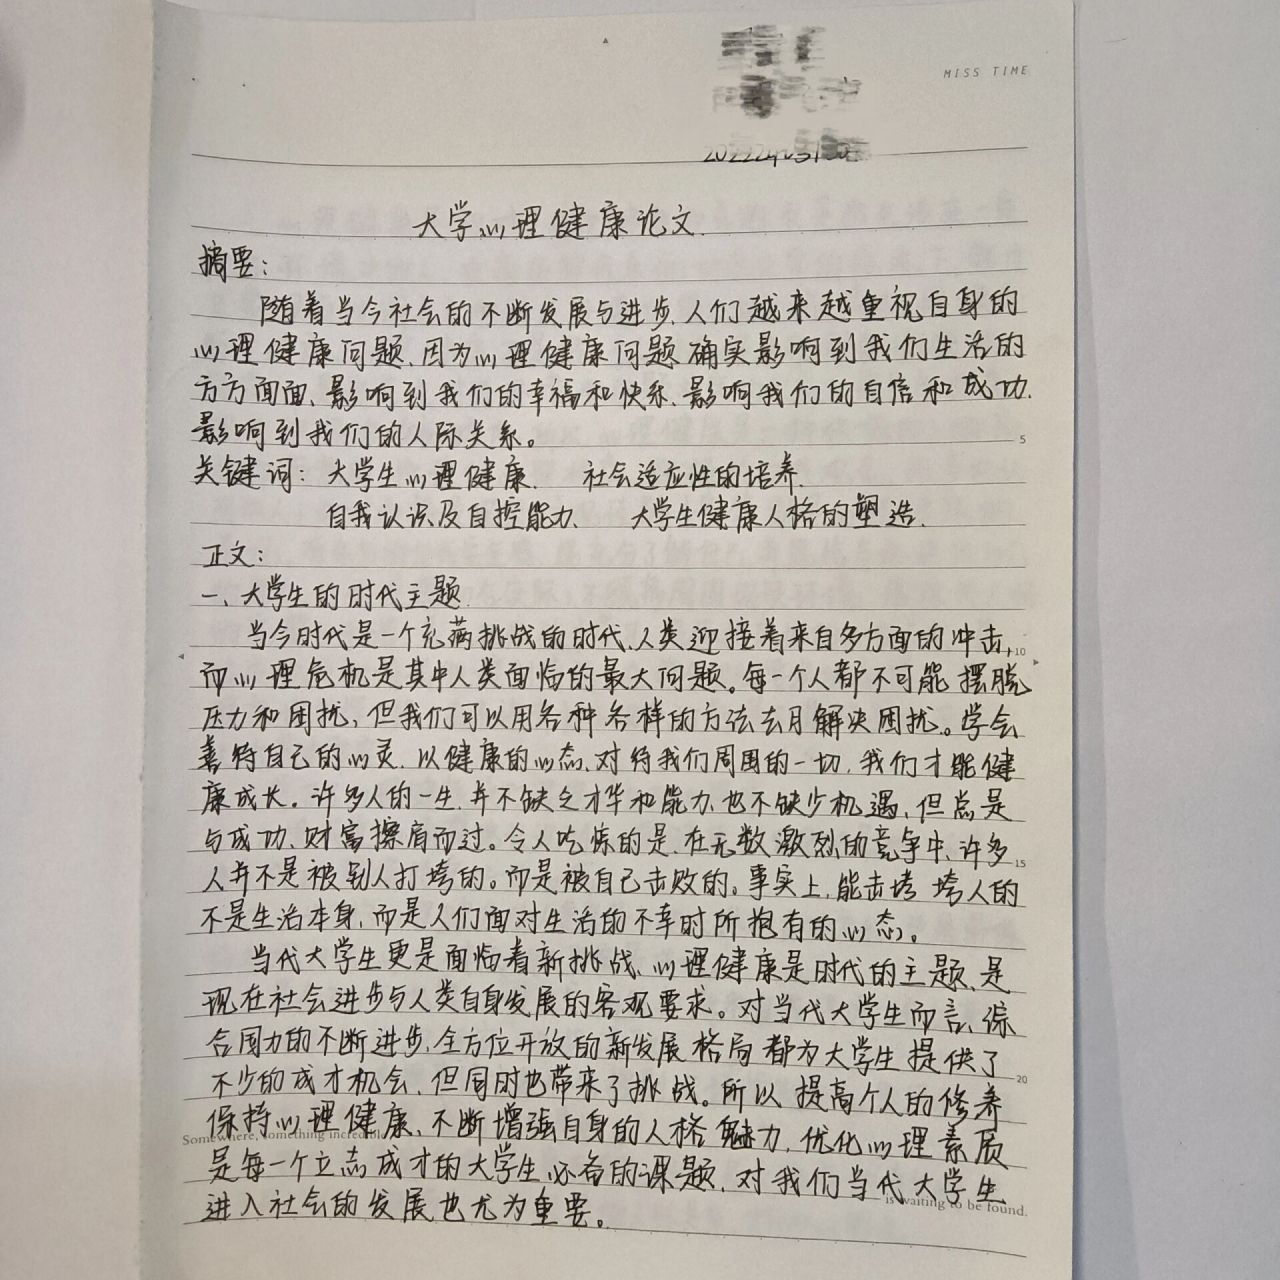 MISS TIME
大学心理健康论文.
摘要：
随着当今社会的不断发展与进步、人们越来越重视自身的
心理健康问题、因为心理健康问题确实影响到我们生活的
方方面面、影响到我们的幸福和快乐、影响我们的自信和成功.
影响到我们的人际关系。
5
关键词：大学生心理健康. 社会适应性的培养.
自我认识及自控能力、 大学生健康人格的塑造.
正文：
一、大学生的时代主题.
当今时代是一个充满挑战的时代、人类迎接着来自多方面的冲击,
10
而心理危机是其中人类面临的最大问题。每一个人都不可能摆脱
压力和困扰, 但我们可以用各种各样的方法去月解决困扰。学会
善待自己的心灵. 以健康的心态、对待我们周围的一切, 我们才能健
康成长。许多人的一生, 并不缺乏才华和能力, 也不缺少机遇, 但总是
与成功、财富擦肩而过。令人吃惊的是, 在无数激烈的竞争中, 许多
15
人并不是被别人打垮的。而是被自己击败的。事实上, 能击垮人的
不是生活本身, 而是人们面对生活的不幸时所抱有的心态。
当代大学生更是面临着新挑战、心理健康是时代的主题、是
现在社会进步与人类自身发展的客观要求。对当代大学生而言、综
合国力的不断进步, 全方位开放的新发展格局都为大学生提供了
20
不少的成才机会、但同时也带来了挑战。所以提高个人的修养
保持心理健康、不断增强自身的人格魅力, 优化心理素质
Somewhere, something incredible
是每一个立志成才的大学生必备的课题, 对我们当代大学生
is waiting to be found.
进入社会的发展也尤为重要。